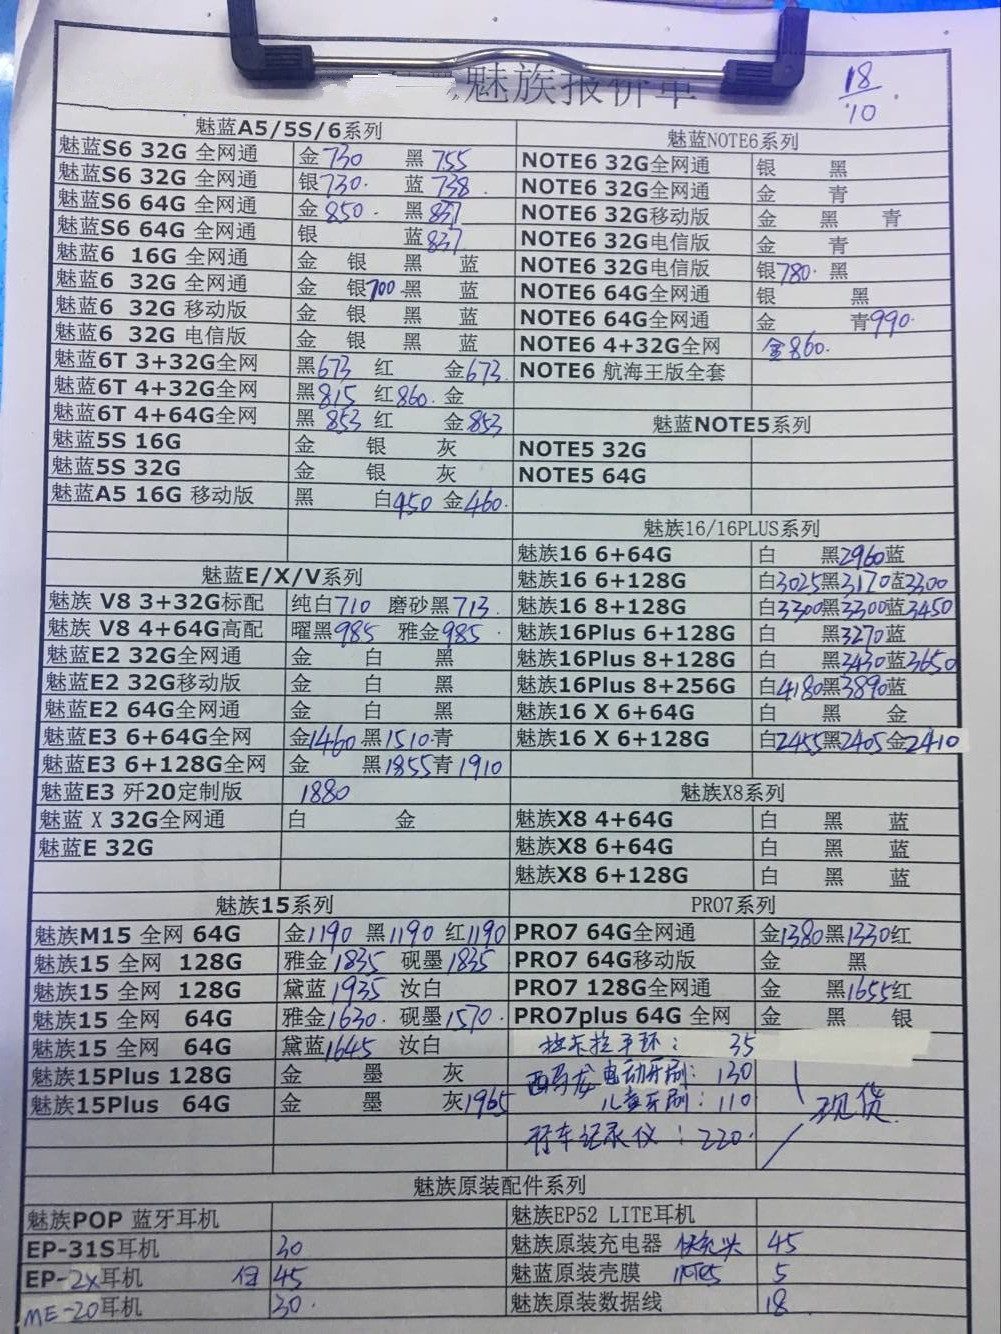 魅族报价单
18/10
魅蓝A5/5S/6系列
魅蓝S6 32G 全网通 金730 黑755
魅蓝S6 32G 全网通 银730. 蓝738
魅蓝S6 64G 全网通 金850. 黑837
魅蓝S6 64G 全网通 银 蓝837
魅蓝6 16G 全网通 金 银 黑 蓝
魅蓝6 32G 全网通 金 银700 黑 蓝
魅蓝6 32G 移动版 金 银 黑 蓝
魅蓝6 32G 电信版 金 银 黑 蓝
魅蓝6T 3+32G全网 黑673 红 金673.
魅蓝6T 4+32G全网 黑815 红860. 金
魅蓝6T 4+64G全网 黑853 红 金853
魅蓝5S 16G 金 银 灰
魅蓝5S 32G 金 银 灰
魅蓝A5 16G 移动版 黑 白450 金460.
魅蓝E/X/V系列
魅族 V8 3+32G标配 纯白710 磨砂黑713.
魅族 V8 4+64G高配 曜黑985 雅金985.
魅蓝E2 32G全网通 金 白 黑
魅蓝E2 32G移动版 金 白 黑
魅蓝E2 64G全网通 金 白 黑
魅蓝E3 6+64G全网 金1460 黑1510.青
魅蓝E3 6+128G全网 金 黑1855青1910
魅蓝E3 歼20定制版 1880
魅蓝 X 32G全网通 白 金
魅蓝E 32G
魅族15系列
魅族M15 全网 64G 金1190 黑1190 红1190
魅族15 全网 128G 雅金1835 砚墨1835
魅族15 全网 128G 黛蓝1935 汝白
魅族15 全网 64G 雅金1630. 砚墨1570.
魅族15 全网 64G 黛蓝1645 汝白
魅族15Plus 128G 金 墨 灰
魅族15Plus 64G 金 墨 灰1965
魅蓝NOTE6系列
NOTE6 32G全网通 银 黑
NOTE6 32G全网通 金 青
NOTE6 32G移动版 金 黑 青
NOTE6 32G电信版 金 青
NOTE6 32G电信版 银780. 黑
NOTE6 64G全网通 银 黑
NOTE6 64G全网通 金 青990.
NOTE6 4+32G全网 金860.
NOTE6 航海王版全套
魅蓝NOTE5系列
NOTE5 32G
NOTE5 64G
魅族16/16PLUS系列
魅族16 6+64G 白 黑2960蓝
魅族16 6+128G 白3025黑3170蓝3300
魅族16 8+128G 白3300黑3300蓝3450
魅族16Plus 6+128G 白 黑3270蓝
魅族16Plus 8+128G 白 黑3430蓝3650
魅族16Plus 8+256G 白4180黑3890蓝
魅族16 X 6+64G 白 黑 金
魅族16 X 6+128G 白2455黑2405金2410
魅族X8系列
魅族X8 4+64G 白 黑 蓝
魅族X8 6+64G 白 黑 蓝
魅族X8 6+128G 白 黑 蓝
PRO7系列
PRO7 64G全网通 金1380黑1330红
PRO7 64G移动版 金 黑
PRO7 128G全网通 金 黑1655红
PRO7plus 64G 全网 金 黑 银
拉卡拉手环: 35
西马龙 电动牙刷: 130
儿童牙刷: 110
现货
行车记录仪: 220.
魅族原装配件系列
魅族POP 蓝牙耳机
EP-31S耳机 30
EP-2X耳机 白 45
ME-20耳机 30.
魅族EP52 LITE耳机
魅族原装充电器 快充头 45
魅蓝原装壳膜 5
魅族原装数据线 18